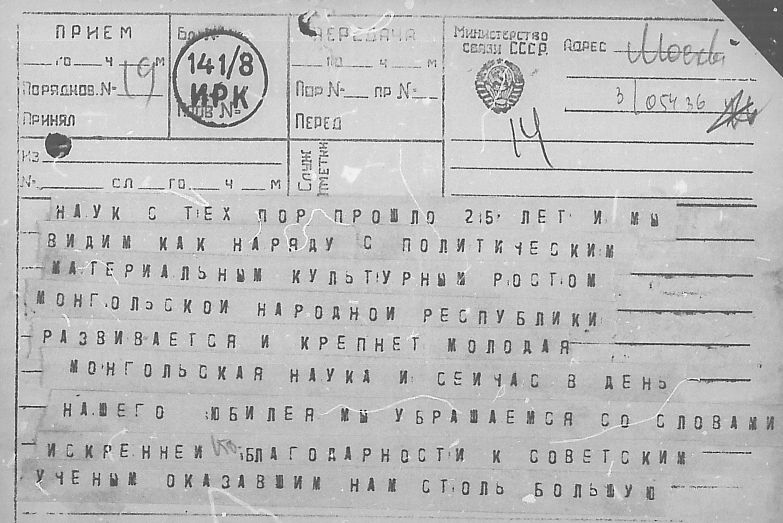 ПРИЕМ
ГО Ч М
19
Порядков. №
Принял
Бл №
141/8
ИРК
ПЕРЕДАЧА
ГО Ч М
Пор № пр №
Перед
Министерство
связи СССР.
Адрес
3/05436
14
Из
№ сл го ч м
Служ
НАУК С ТЕХ ПОР ПРОШЛО 25 ЛЕТ И МЫ
ВИДИМ КАК НАРЯДУ С ПОЛИТИЧЕСКИМ
МАТЕРИАЛЬНЫМ КУЛЬТУРНЫМ РОСТОМ
МОНГОЛЬСКОЙ НАРОДНОЙ РЕСПУБЛИКИ
РАЗВИВАЕТСЯ И КРЕПНЕТ МОЛОДАЯ
МОНГОЛЬСКАЯ НАУКА И СЕЙЧАС В ДЕНЬ
НАШЕГО ЮБИЛЕЯ МЫ УБРАШАЕМСЯ СО СЛОВАМИ
ИСКРЕННЕЙ БЛАГОДАРНОСТИ К СОВЕТСКИМ
УЧЕНЫМ ОКАЗАВШИМ НАМ СТОЛЬ БОЛЬШУЮ